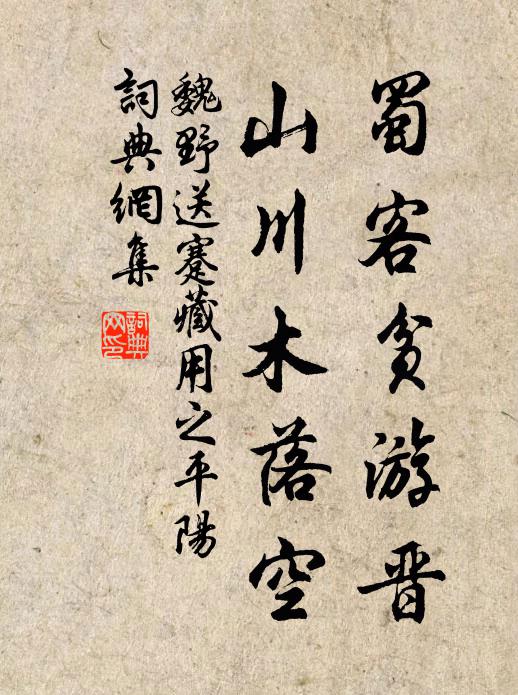 蜀客貧游晋
山川木落空
魏野送蹇藏用之平陽
詞典網集
詞典
网印